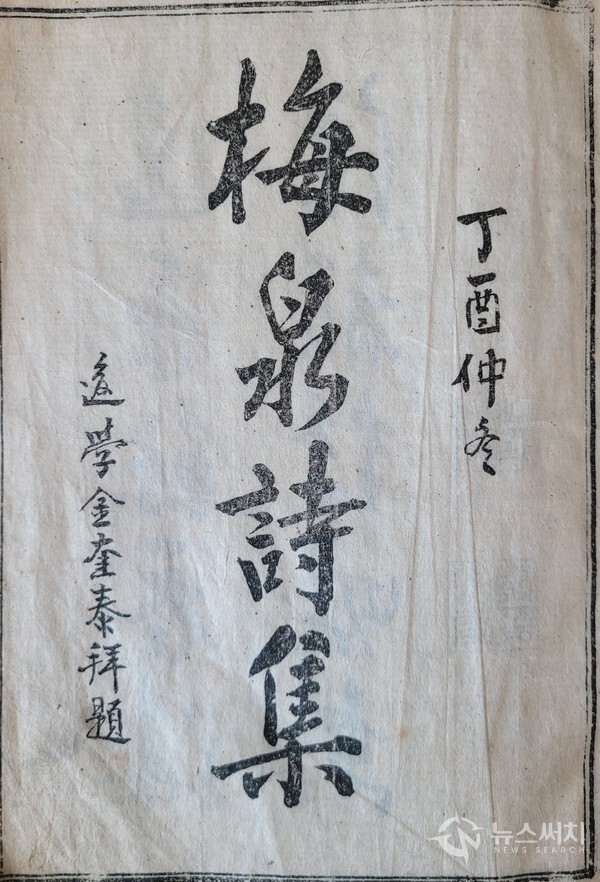 丁酉仲冬
梅泉詩集
後学金奎泰拜題
뉴스써치
NEWS SEARCH